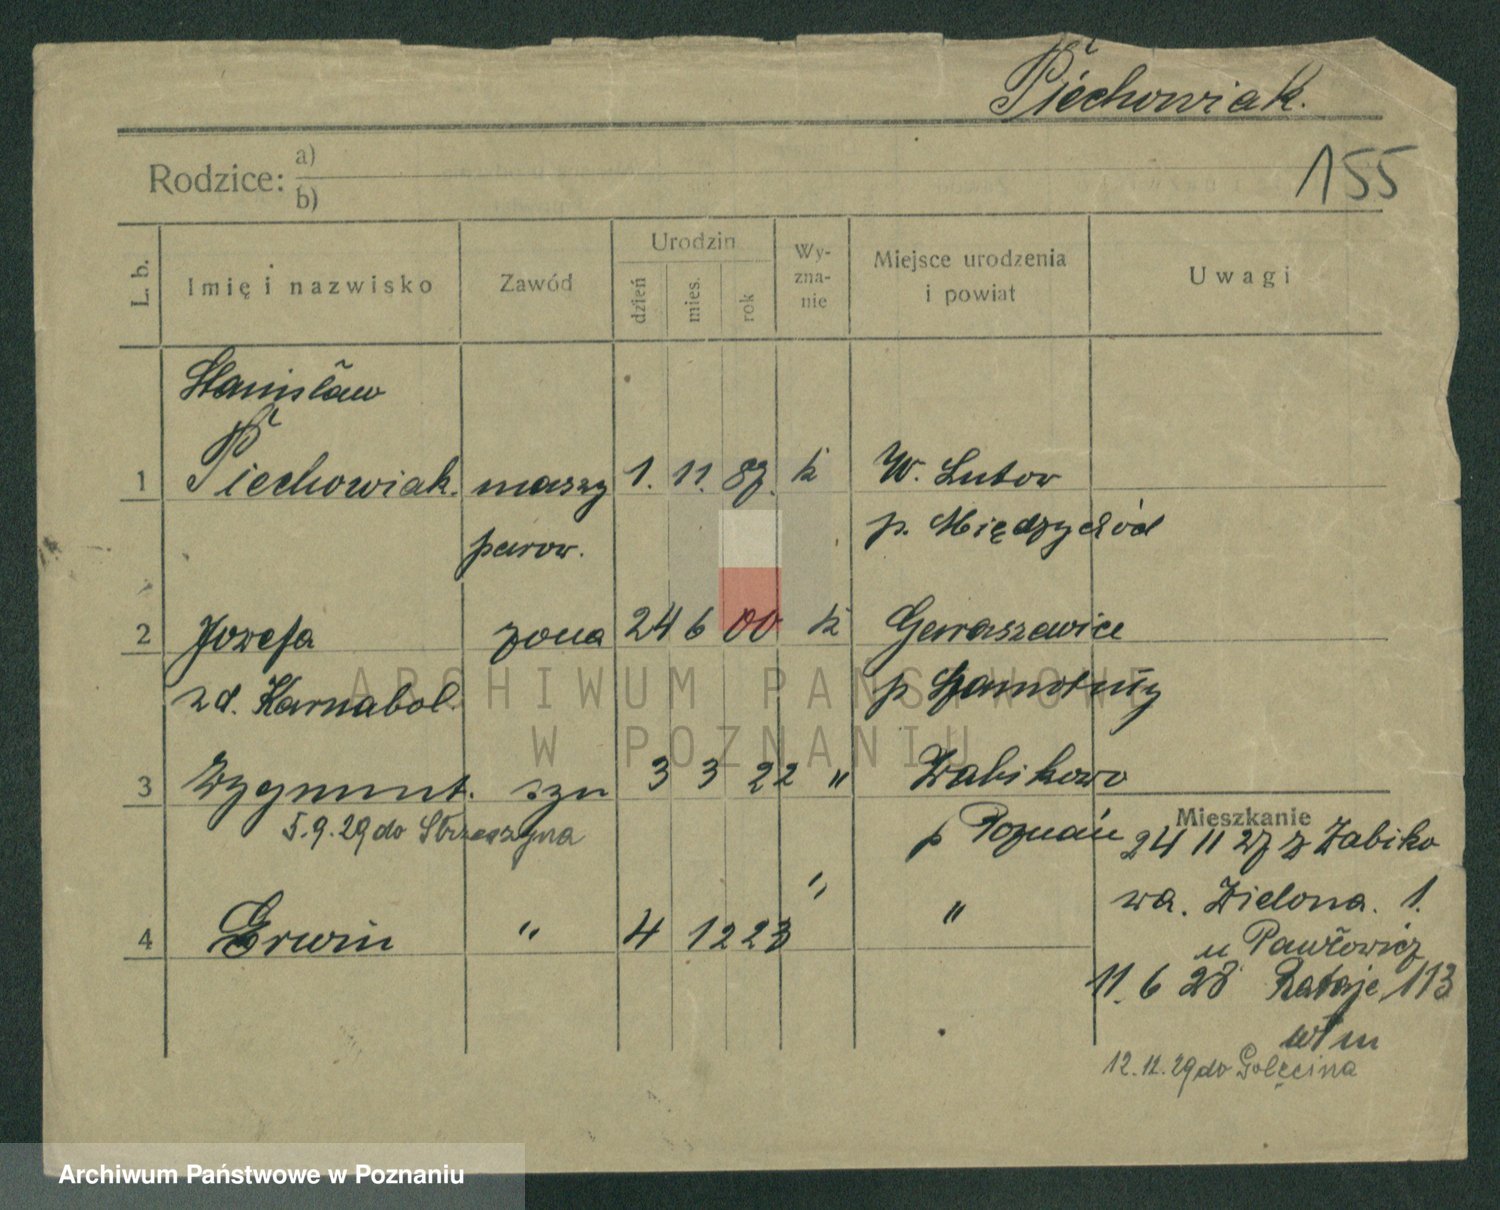 Piechowiak.
155
Rodzice: a)
b)
L. b.
Imię i nazwisko
Zawód
Urodzin
dzień
mies.
rok
Wy-
zna-
nie
Miejsce urodzenia
i powiat
Uwagi
Stanisław
1 Piechowiak. maszy 1. 11. 87. k W. Lutow
parow. p. Międzychód
2 Józefa żona 24 6 00 k
zd. Karnabol. p Szamotuły
3 Zygmunt. syn 3 3 22 " Żabikowo
5.9.29 do Strzeszyna p Poznań
Mieszkanie
24 11 27 z Żabiko
4 Erwin " 4 12 23 " "
wa. Zielona. 1.
u Pawłowicz
11. 6 28 Rataje 113
wł m
12.11.29 do Golęcina
ARCHIWUM PAŃSTWOWE
W POZNANIU
Archiwum Państwowe w Poznaniu